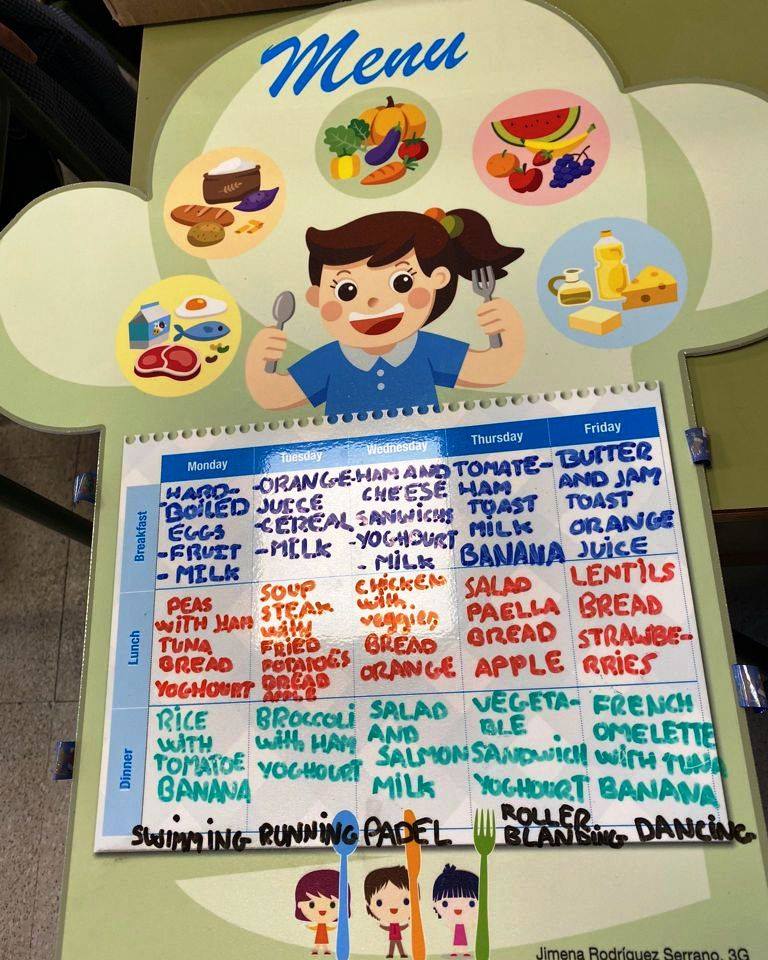 Menu
Monday Tuesday Wednesday Thursday Friday
Breakfast
HARD-
BOILED
EGGS
-FRUIT
- MILK
-ORANGE
JUICE
-CEREAL
-MILK
-HAM AND
CHEESE
SANWICHS
-YOGHOURT
- MILK
TOMATE-
HAM
TOAST
MILK
BANANA
BUTTER
AND JAM
TOAST
ORANGE
JUICE
Lunch
PEAS
WITH HAM
TUNA
BREAD
YOGHOURT
SOUP
STEAK
WITH
FRIED
POTATOES
BREAD
APPLE
CHICKEN
with
veggies
BREAD
ORANGE
SALAD
PAELLA
BREAD
APPLE
LENTILS
BREAD
STRAWBE-
RRIES
Dinner
RICE
WITH
TOMATOE
BANANA
BROCCOLI
WITH HAM
YOGHOURT
SALAD
AND
SALMON
MILK
VEGETA-
BLE
SANDWICH
YOGHOURT
FRENCH
OMELETTE
WITH TUNA
BANANA
SWIMMING RUNNING PADEL ROLLER
BLANDING DANCING
Jimena Rodríguez Serrano. 3G